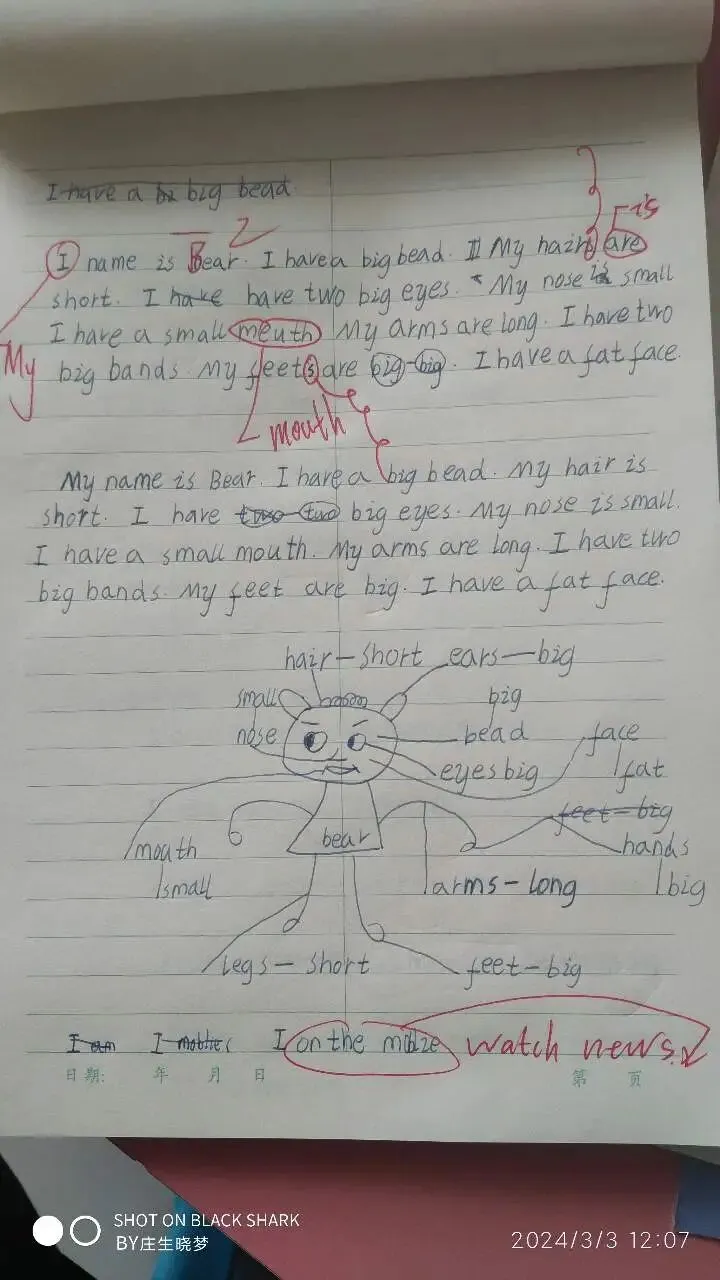 I have a big bead
I name is Bear. I have a big bead. My hairs are is
short. I have have two big eyes. My nose is small
I have a small meuth My arms are long. I have two
My big bands. My feets are big-big. I have a fat face.
mouth
My name is Bear. I have a big bead. My hair is
short. I have two two big eyes. My nose is small.
I have a small mouth. My arms are long. I have two
big bands. My feet are big. I have a fat face.
hair-short ears-big
small big
nose bead face
eyes big fat
feet-big
mouth bear hands
small arms-long big
legs-short feet-big
I am I I on the watch news.
日期: 年 月 日 第 页
SHOT ON BLACK SHARK
BY庄生晓梦 2024/3/3 12:07